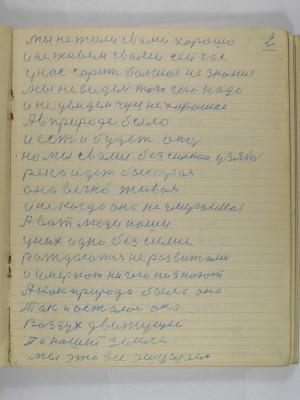 2
мы не жили с вами хорошо
и не живем с вами сейчас
у нас горит большое не знание
мы не видем того чего надо
и не увидем чуи не хорошие
А в природе было
и есть и будет оно,
но мы с вами без силно
река идет быстрая
она вечно живая
и не когда она не умераемая
А вот люди наши
у них одно без силие
раждаются не развитыми
и умерают ничего не знают
А как природа была она
так и осталася она
Воздух движущей
По нашей земле
мы это все ощущаем